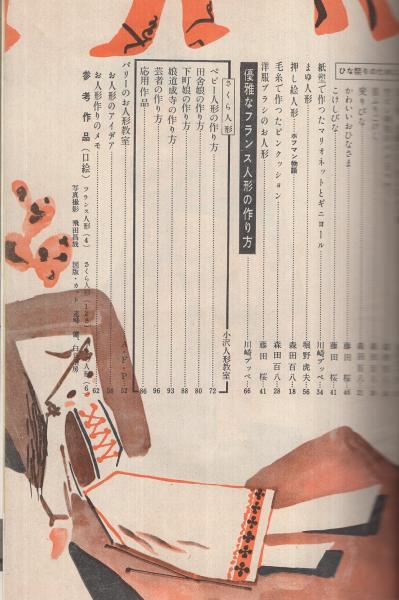 ひな祭りのため
かわいいおひなさま
こけしびな
紙塑で作つたマリオネットとギニョール 川崎プッペ 34
まゆ人形 堀野虎夫 56
押し絵人形 ホフマン物語 森田百八 18
毛糸で作つたピンクッション 森田百八 28
洋服ブラシのお人形 藤田桜 41
優雅なフランス人形の作り方 川崎プッペ 66
さくら人形 小沢人形教室
ベビー人形の作り方 72
田舎娘の作り方 80
下町娘の作り方 88
娘道成寺の作り方 93
芸者の作り方 96
応用作品 86
パリーのお人形教室 A・F・P 52
お人形のアイデア 58
お人形作りのメモ 62
参考作品(口絵) フランス人形(4) さくら人形
写真撮影 飛田昌哉 図版・カット